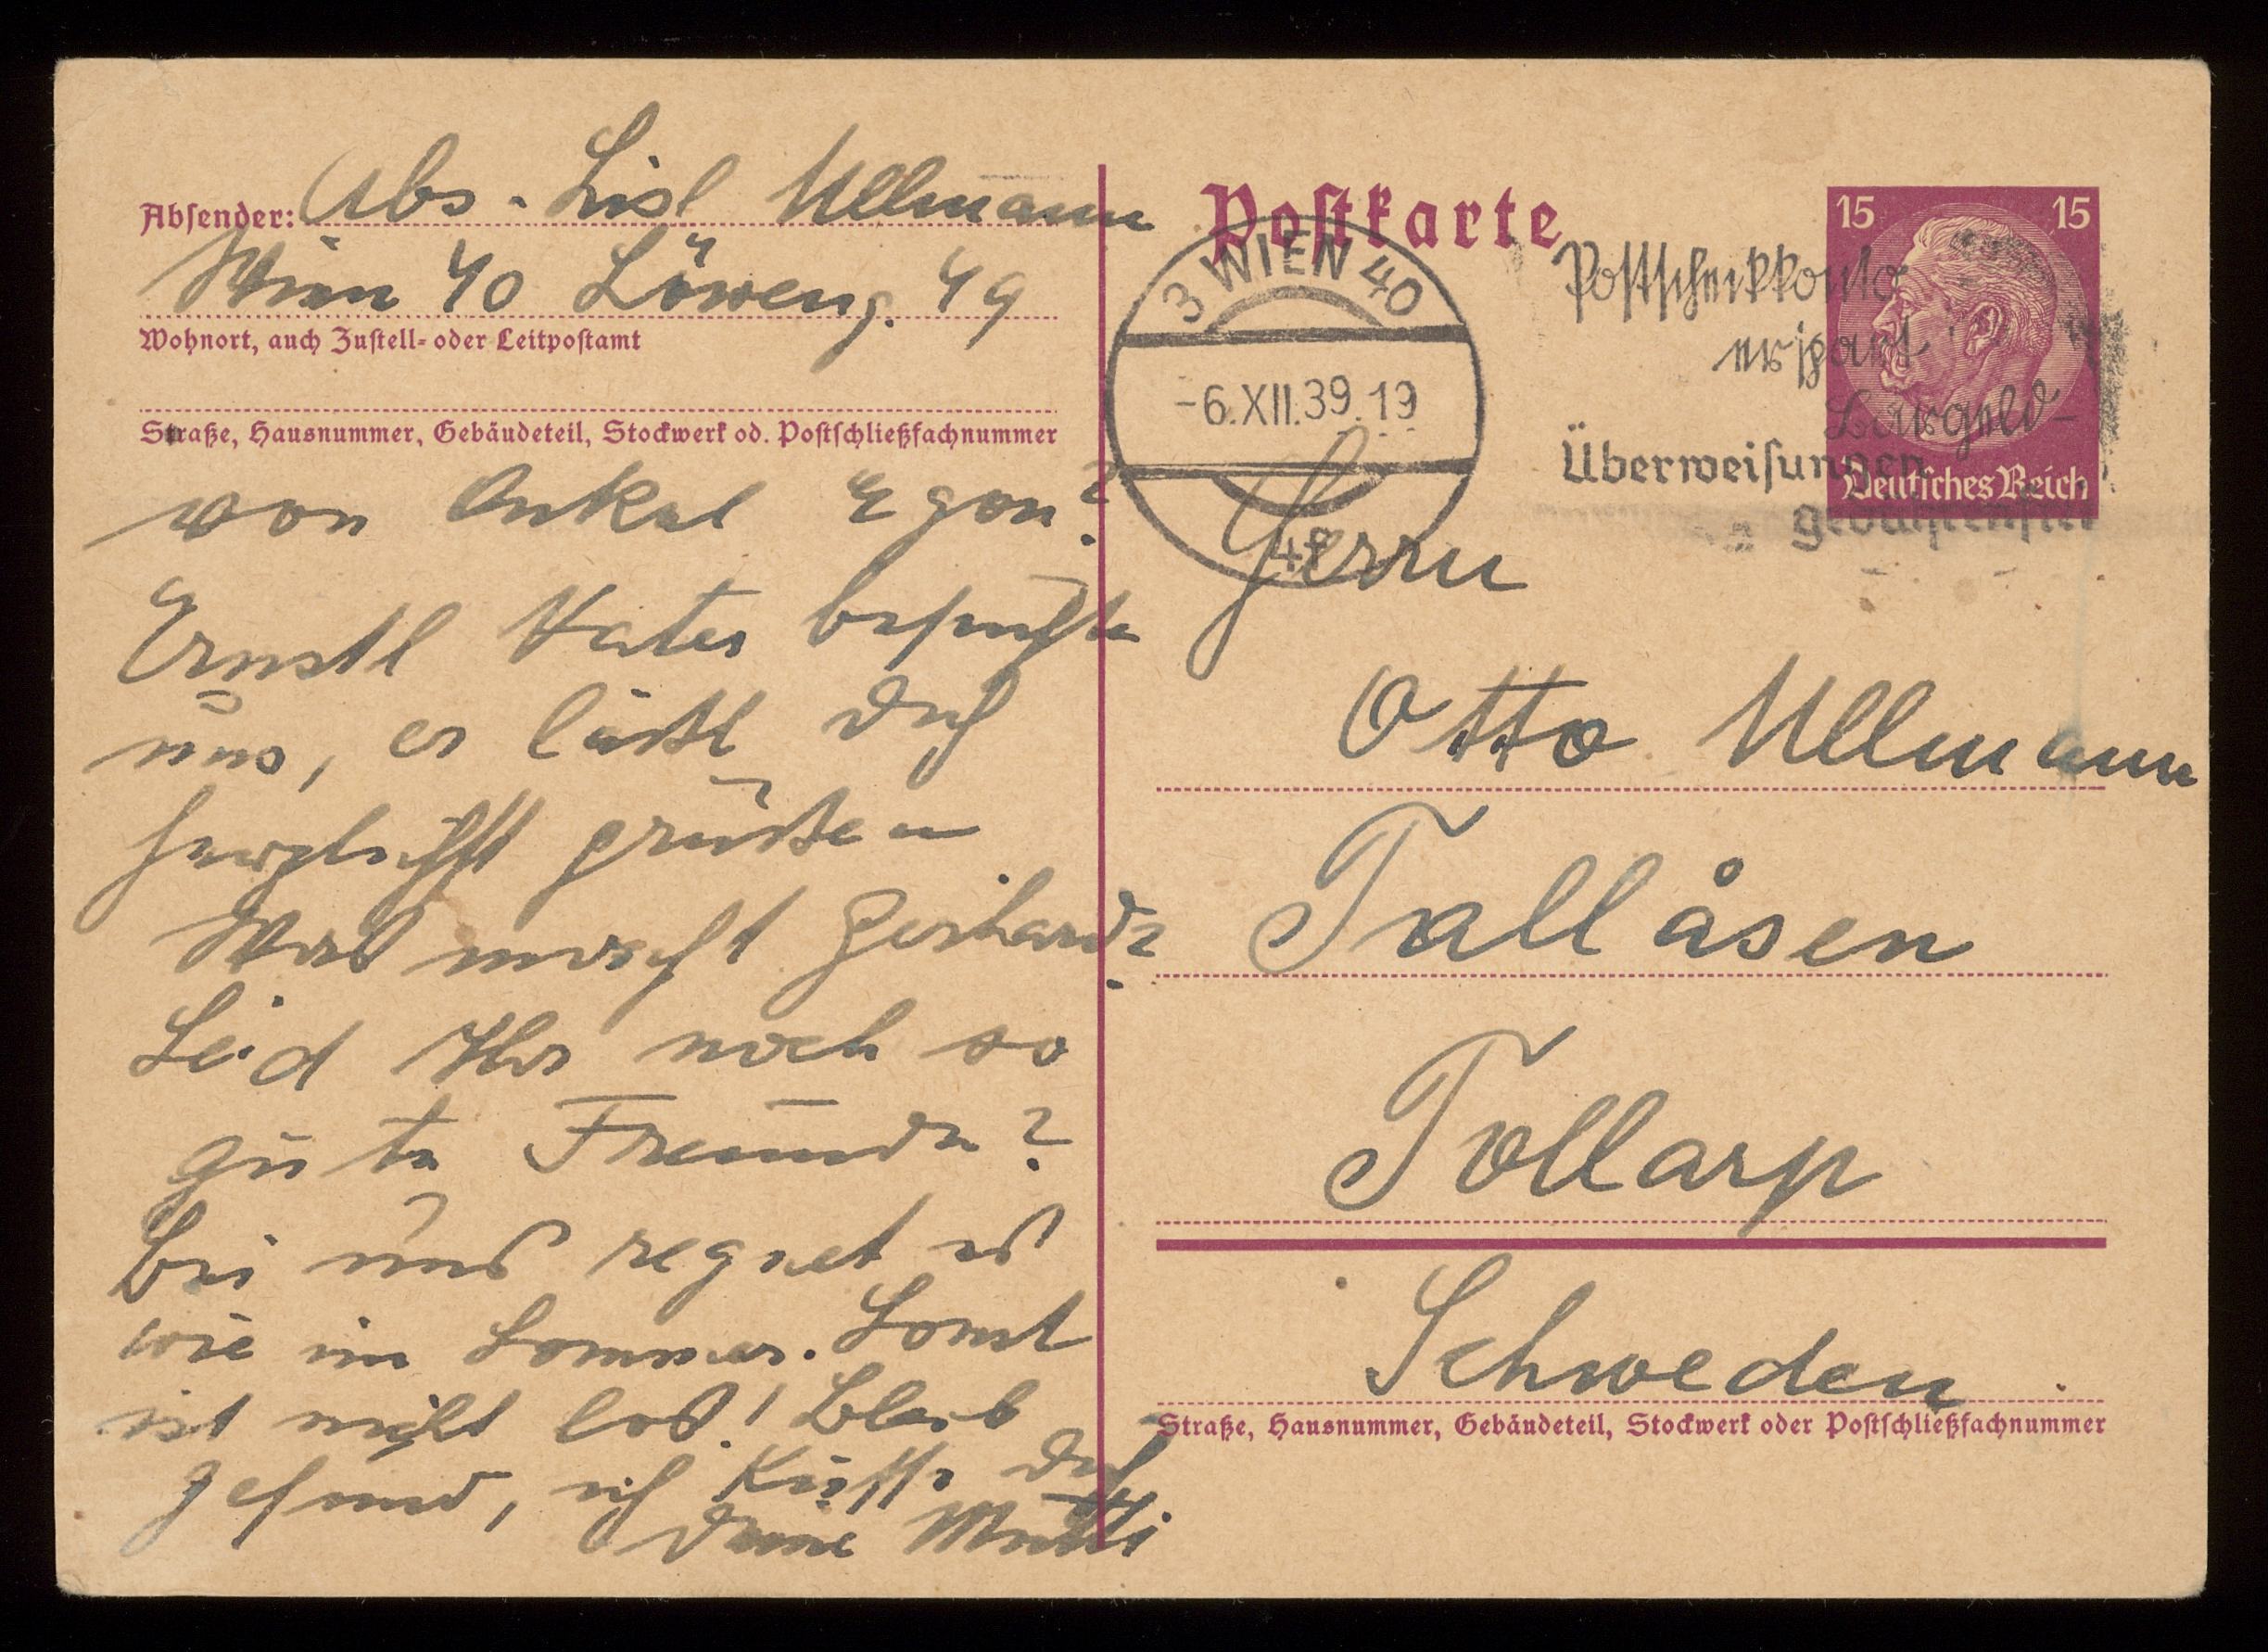 Absender: Abs. Lisl Ullmann
Wien 40 Löweng. 49
Wohnort, auch Zustell- oder Leitpostamt
Straße, Hausnummer, Gebäudeteil, Stockwerk od. Postschließfachnummer
von Onkel Egon?
Ernstl Vater besuchte
uns, er läßt Dich
herzlichst grüßen
Was macht Gerhard?
Seid Ihr noch so
gute Freunde?
Bei uns regnet es
wie im Sommer. Sonst
ist nicht los! Bleib
gesund, ich küsse Dich
Deine Mutti
Postkarte
3 WIEN 40
-6.XII.39.19
Postscheckkonto
erspart
Bargeld-
Überweisungen
gebührenfrei
15 15
Deutsches Reich
Herrn
Otto Ullmann
Tallåsen
Tollarp
Schweden
Straße, Hausnummer, Gebäudeteil, Stockwerk oder Postschließfachnummer